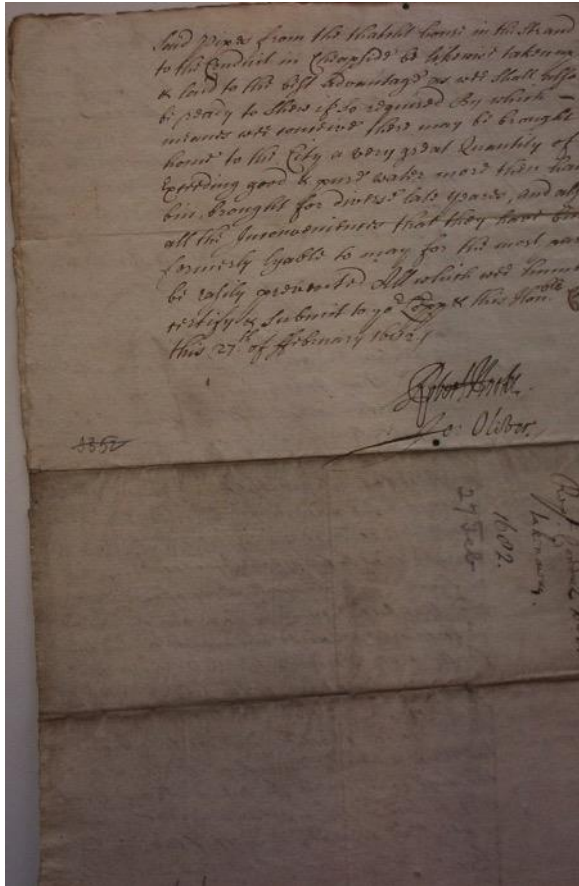 said Pipes from the thatcht house in the Strand
to the Conduit in Cheapside be likewise taken up
& laid to the best advantage as wee shall
be ready to shew if so required By which
meanes wee conceive there may be brought
home to the City a very great Quantity of
Exceeding good & pure water more then ha
bin brought for diverse late yeares, and
all the Inconveniences that they have
formerly lyable to may for the most
be easily prevented All which wee
certify & submit to yor Lopp & this Honoble
this 27th of ffebruary 1682
Jo: Oliver
1682.
27 Feb